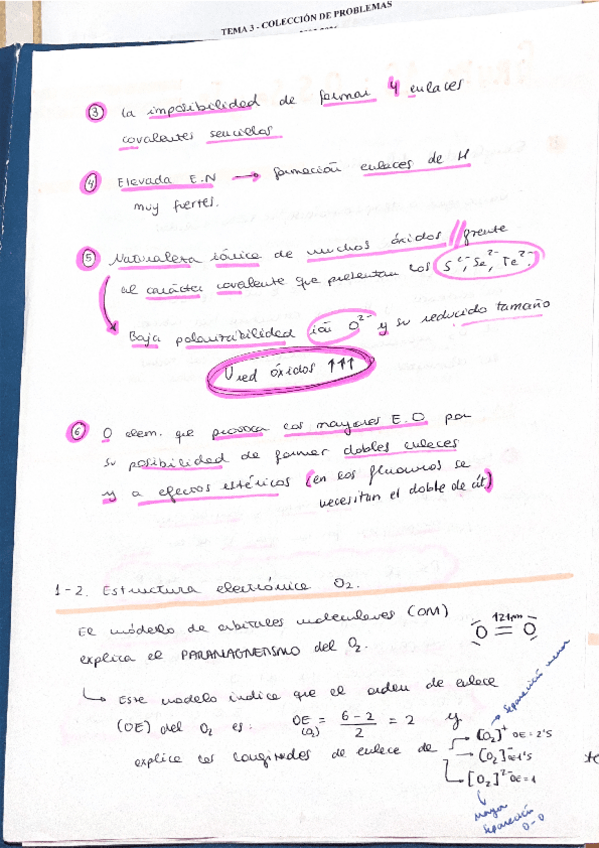 TEMA 3 - COLECCIÓN DE PROBLEMAS
③ la imposibilidad de formar 4 enlaces
covalentes sencillos
④ Elevada E.N → formación enlaces de H
muy fuertes.
⑤ Naturaleza iónica de muchos óxidos // frente
al carácter covalente que presentan los S²⁻, Se²⁻, Te²⁻.
Baja polarizabilidad ión O²⁻ y su reducido tamaño
U red óxidos ↑↑↑
⑥ O elem. que provoca los mayores E.O por
su posibilidad de formar dobles enlaces
y a efectos estéricos (en los fluoruros se
necesitan el doble de át)
1-2. Estructura electrónica O₂.
El módelo de orbitales moleculares (OM)
explica el PARAMAGNETISMO del O₂.
121pm
O = O
↳ Este modelo indica que el orden de enlace
(OE) del O₂ es: OE (O₂) = 6-2 / 2 = 2 y
explica las longitudes de enlace de
→ [O₂]⁺ OE = 2'5
→ separación menor
→ [O₂]⁻ OE=1'5
→ [O₂]²⁻ OE=1
Mayor
separación
O-O